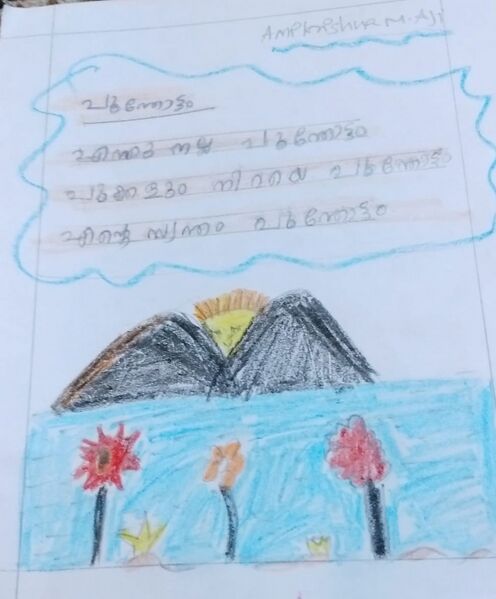 Amrithishna M. Aji
പൂന്തോട്ടം
എന്തു നല്ല പൂന്തോട്ടം
പൂക്കളും നിറയെ പൂന്തോട്ടം
എന്റെ സ്വന്തം പൂന്തോട്ടം